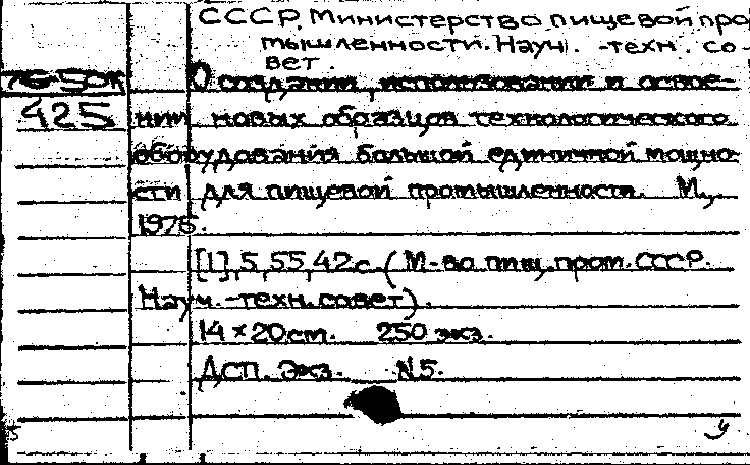 СССР. Министерство пищевой про
мышленности. Науч. -техн. со-
вет.
76-50К О создании, использовании и освое-
425 нии новых образцов технологического
оборудования большой единичной мощно-
сти для пищевой промышленности. М.,
1975.
[1], 5, 55, 42 с. (М-во пищ. пром. СССР.
Науч.-техн. совет).
14×20 см. 250 экз.
ДСП. Экз. №5.